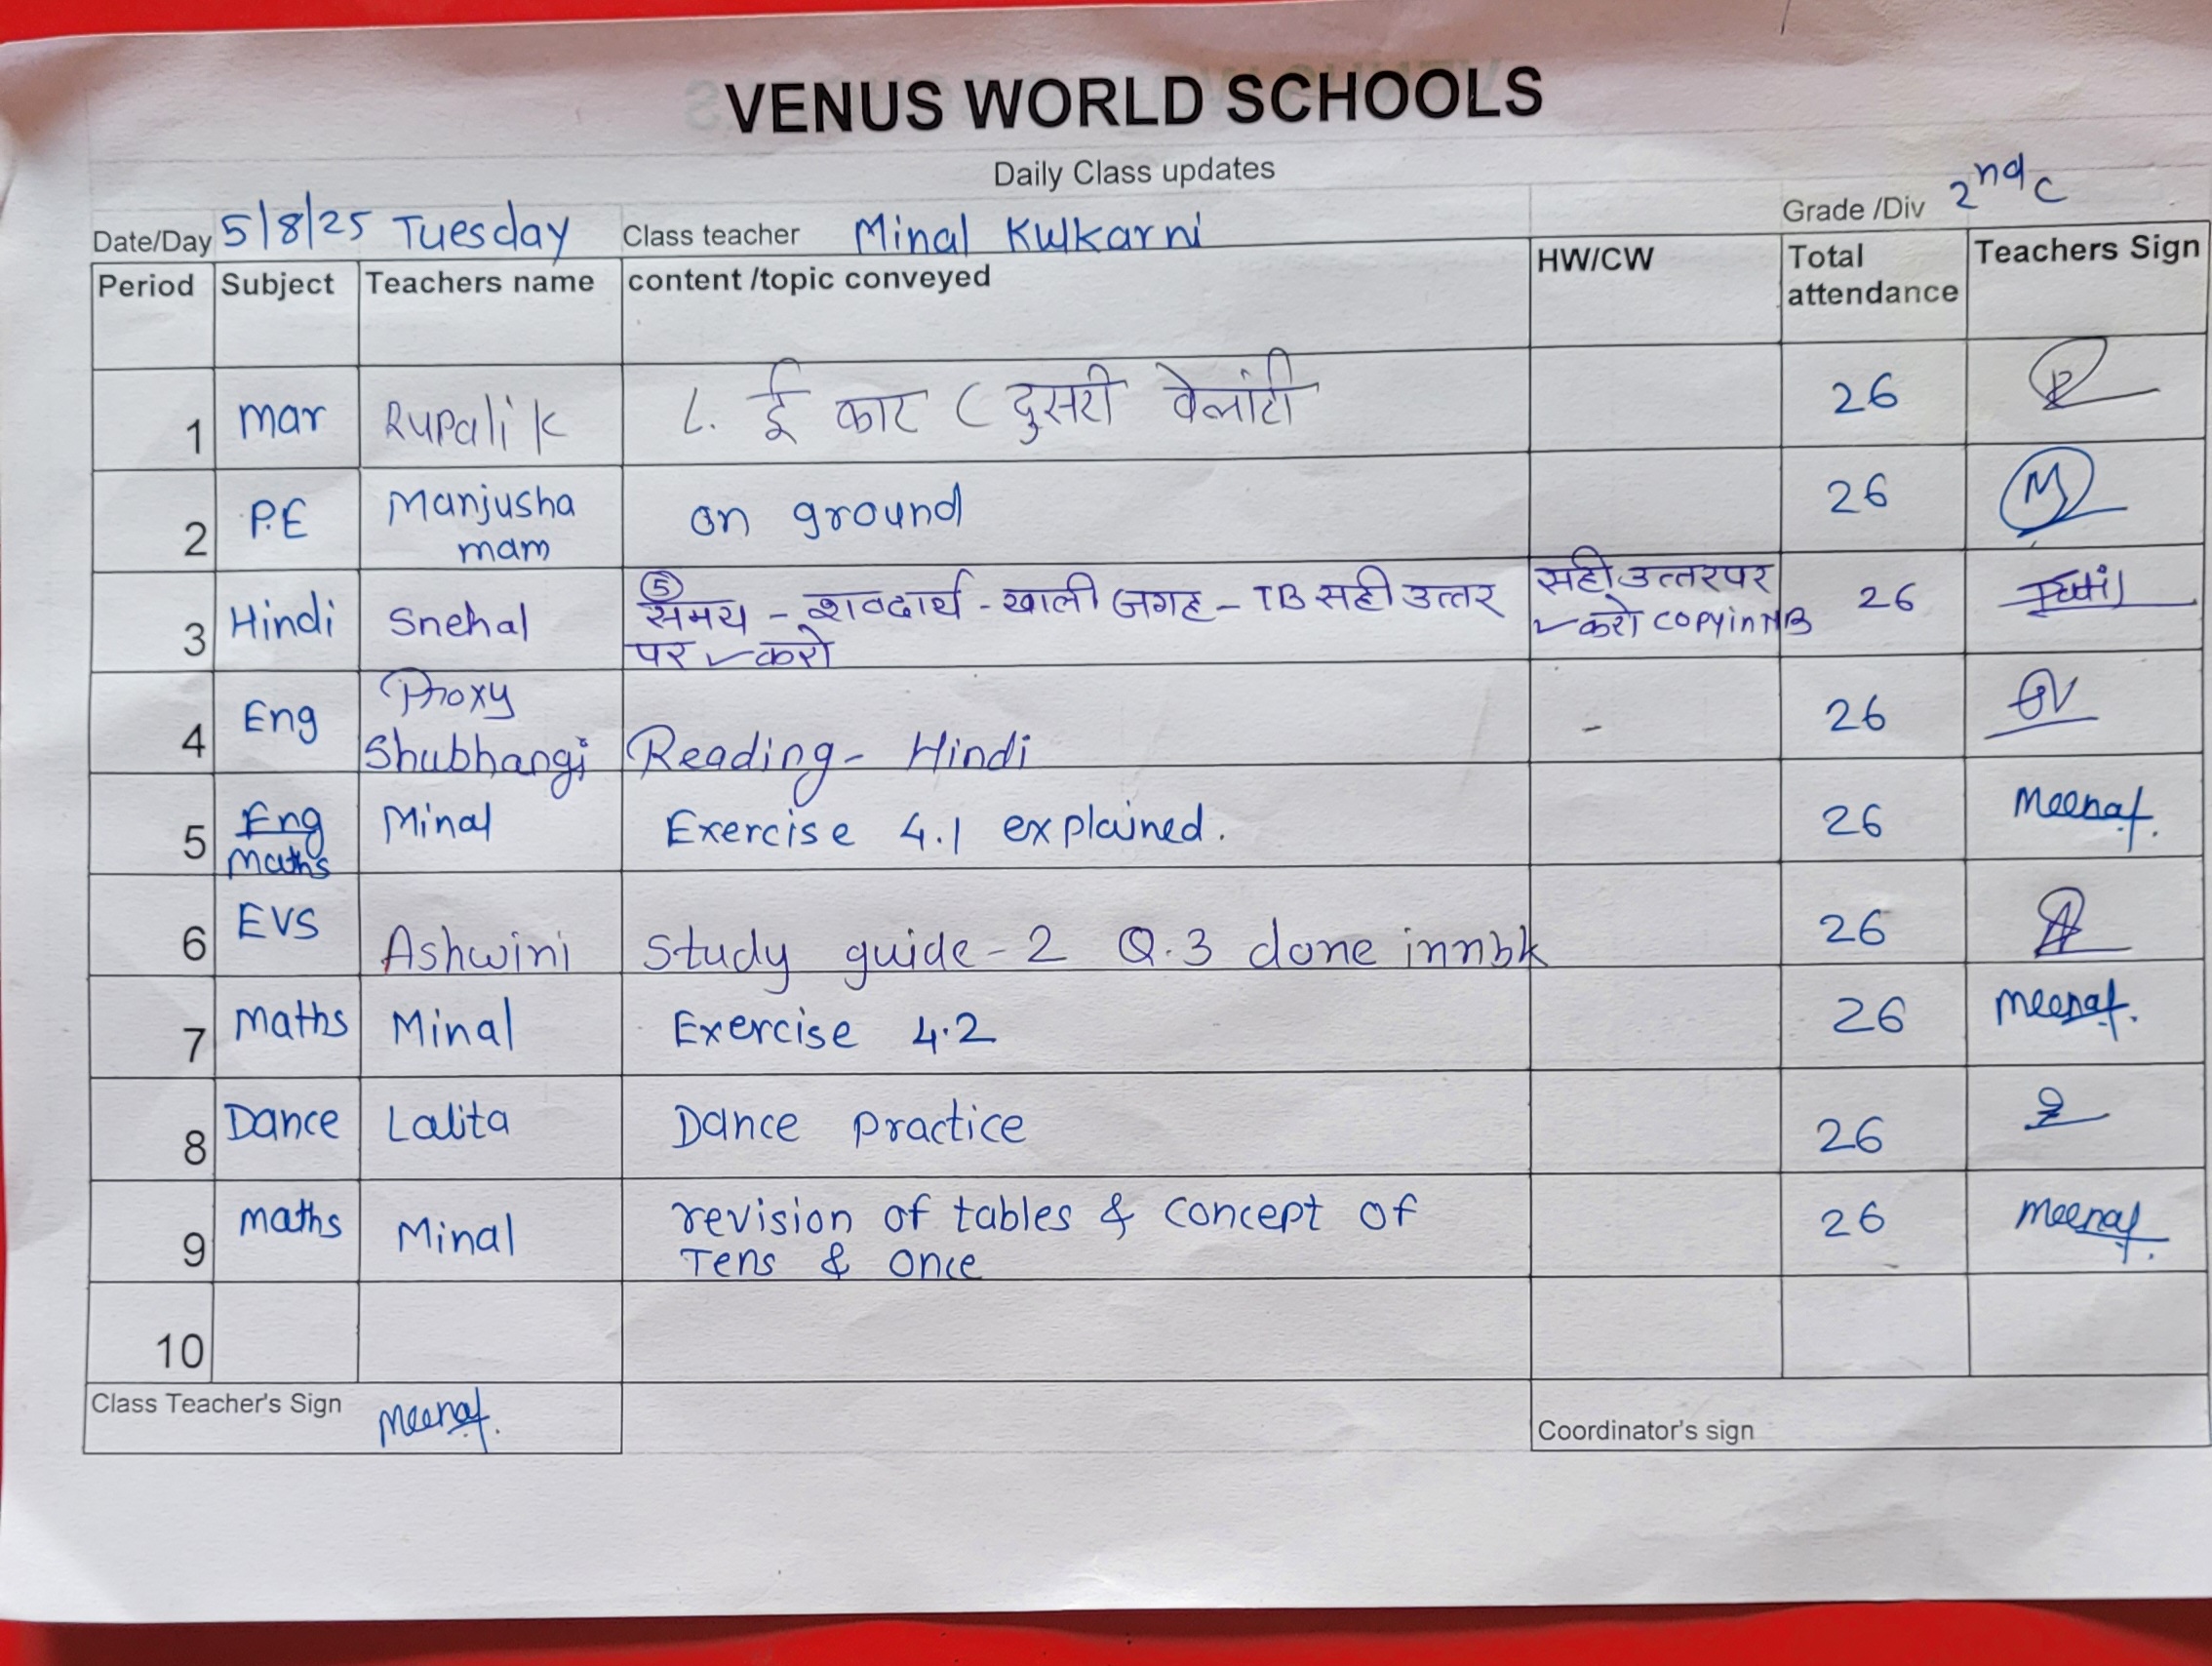 VENUS WORLD SCHOOLS
Daily Class updates
Date/Day 5/8/25 Tuesday Class teacher Minal Kulkarni Grade /Div 2nd C
Period Subject Teachers name content /topic conveyed HW/CW Total attendance Teachers Sign
1 Mar Rupali K ८. ई कार ( दुसरी वेलांटी 26
2 P.E Manjusha mam on ground 26 M
3 Hindi Snehal ⑤ समय - शब्दार्थ - खाली जगह - TB सही उत्तर सही उत्तर पर 26
पर ✓ करो ✓ करो copy in NB
4 Eng Proxy Shubhangi Reading - Hindi - 26
5 Eng Maths Minal Exercise 4.1 explained. 26 Meenal.
6 EVS Ashwini Study guide - 2 Q.3 done in nbk 26
7 Maths Minal Exercise 4.2 26 Meenal.
8 Dance Lalita Dance Practice 26
9 Maths Minal revision of tables & concept of 26 Meenal.
Tens & Once
10
Class Teacher's Sign Meenal.
Coordinator's sign